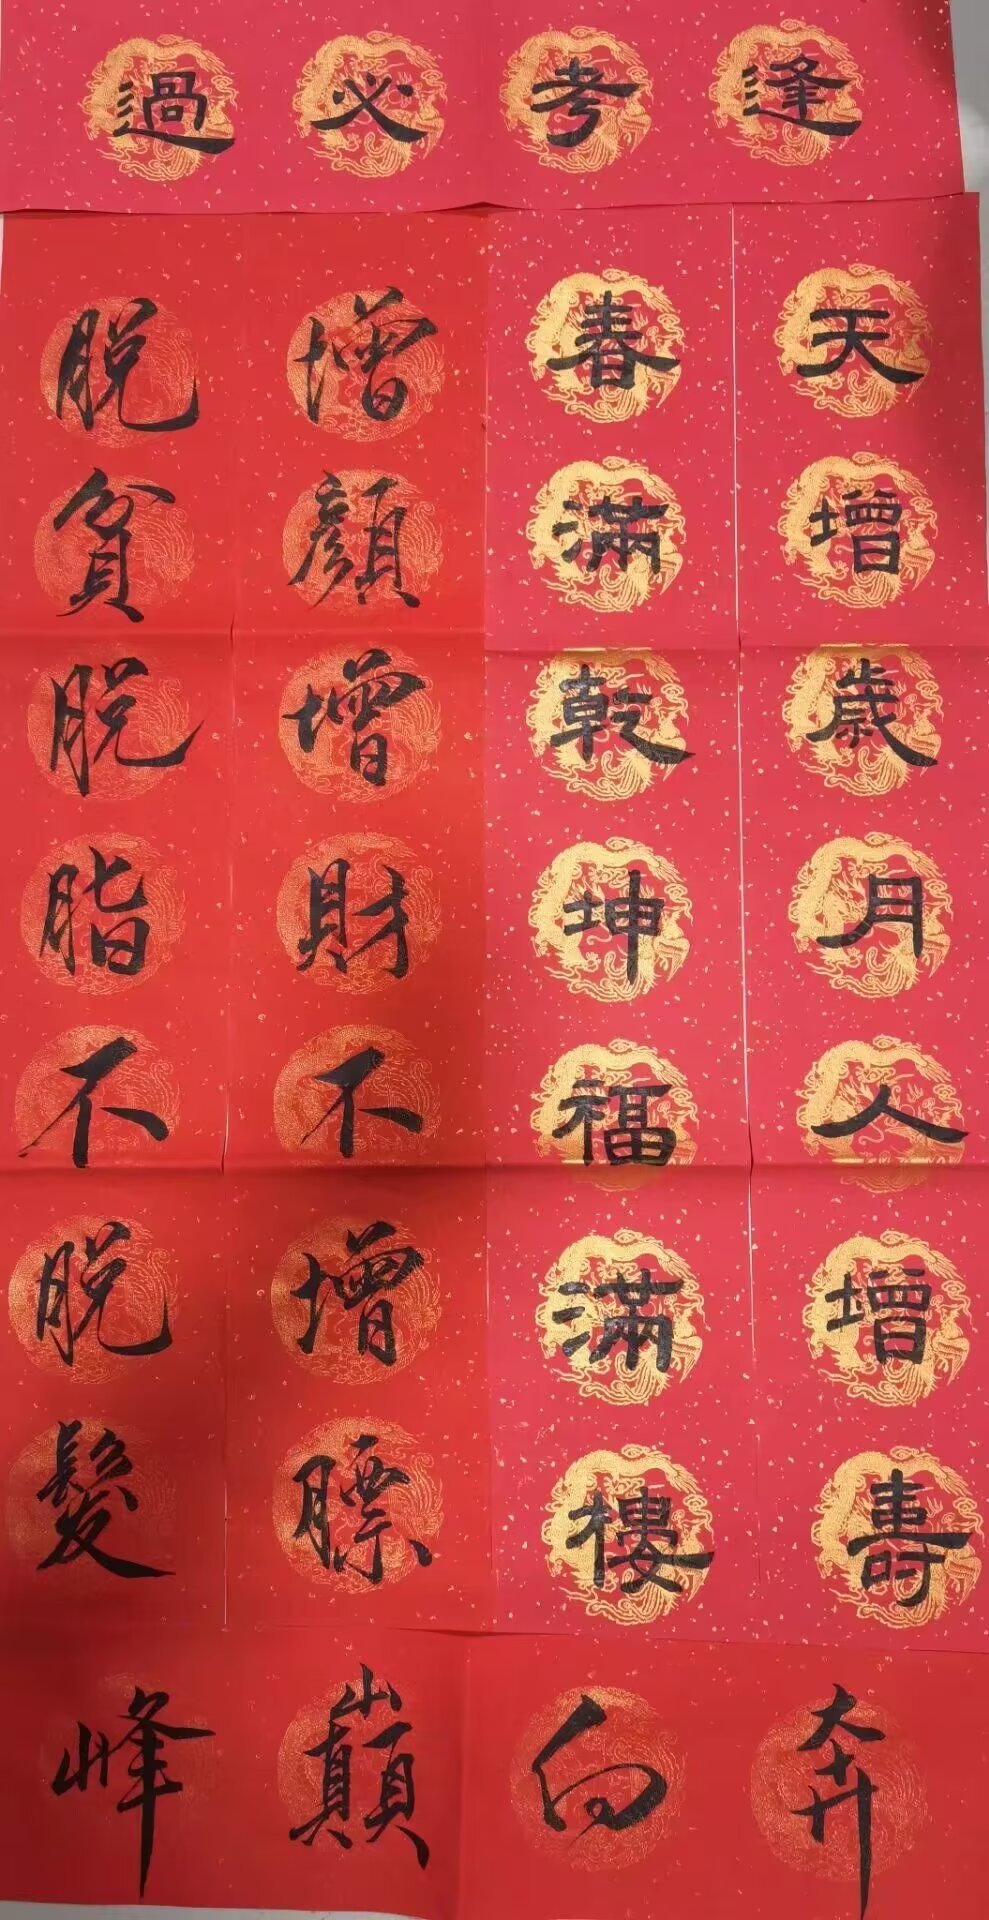 逢考必過
天增歲月人增壽
春滿乾坤福滿樓
增顏增財不增膘
脫貧脫脂不脫髮
奔向巔峰